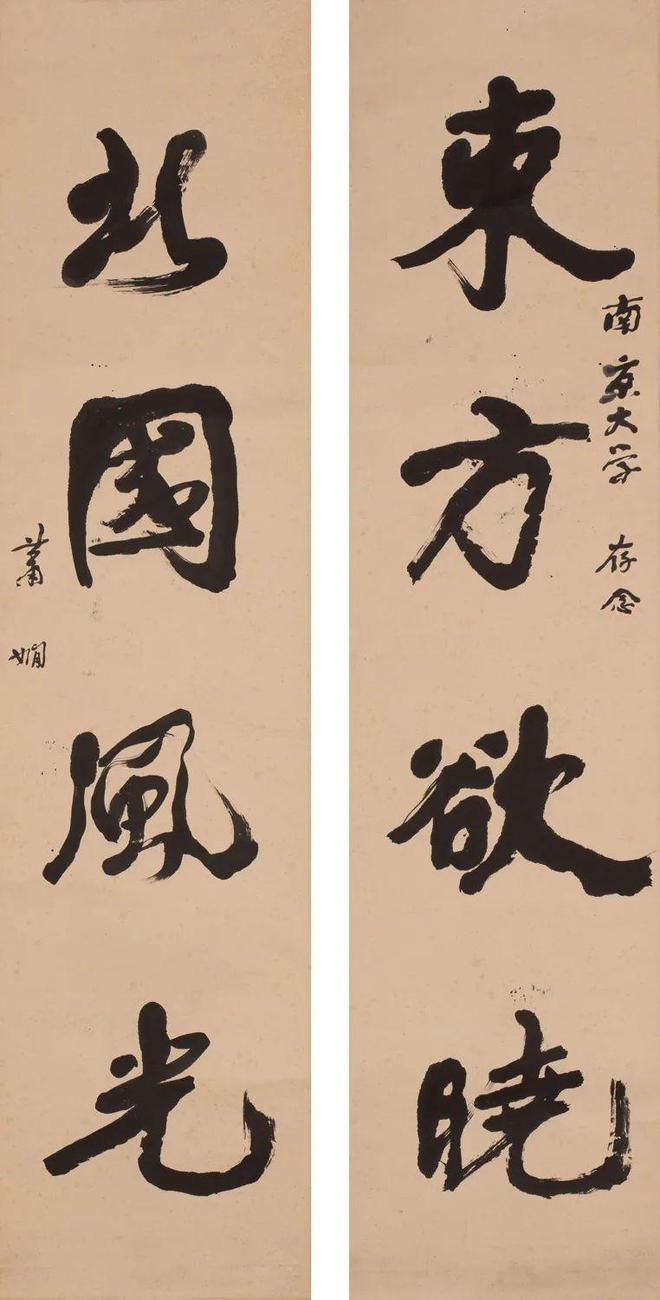 東方欲晓
南京大学 存念
北國風光
蕭嫻